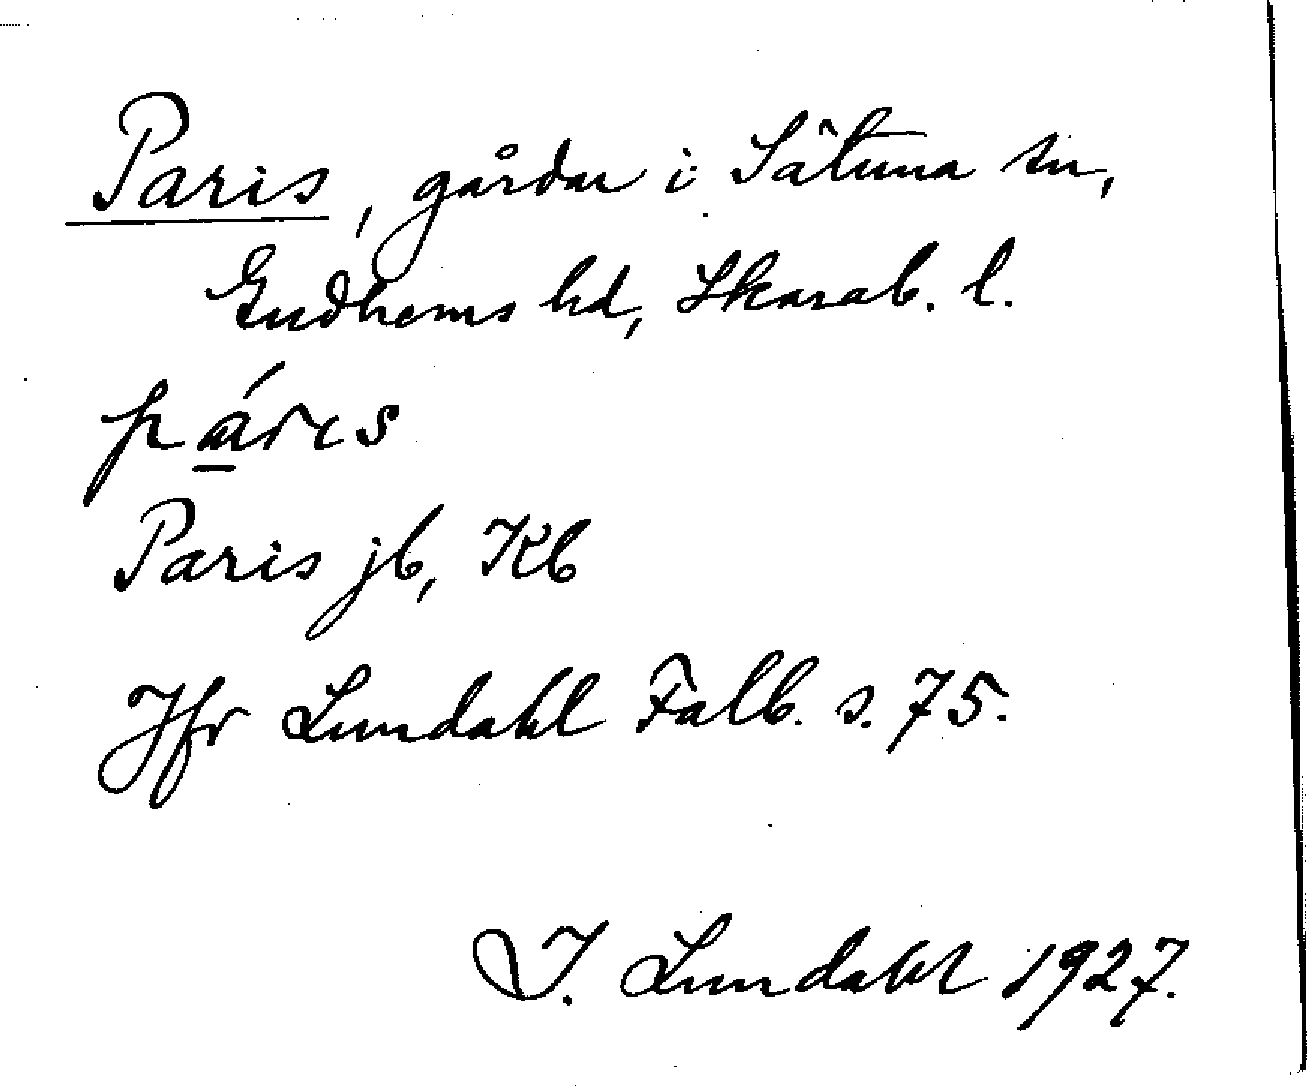 Paris, gårdar i Sätuna sn,
Gudhems hd, Skarab. l.
pá̱rıs
Paris jb, Kb
Jfr Lundahl Falb. s. 75.
I. Lundahl 1927.